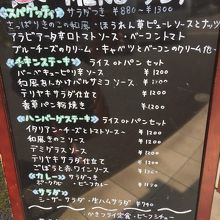 MENU
スパゲティ サラダつき ¥880〜¥1300
さっぱりきのこの和風・ほうれん草ピューレソースとナッツ
アラビアータ辛口トマトソース・ベーコントマト
ブルーチーズのクリーム・キャベツとベーコンのクリーム
チキンステーキ ライス or パン セット
バーベキューピリ辛ソース ¥1200
和風あんかけバルサミコソース ¥1200
テリヤキサラダ仕立て ¥1200
香草パン粉焼き ¥1200
ハンバーグステーキ ライス or パンセット
イタリアンチーズとトマトソース ¥1200
和風おろしソース ¥1200
デミグラスソース ¥1200
テリヤキサラダ仕立て ¥1200
ごぼうと赤ワインソース ¥1200
カレー サラダつき
ポークカレー・ビーフカレー
サラダ
シーザーサラダ・生ハムサラダ ¥940